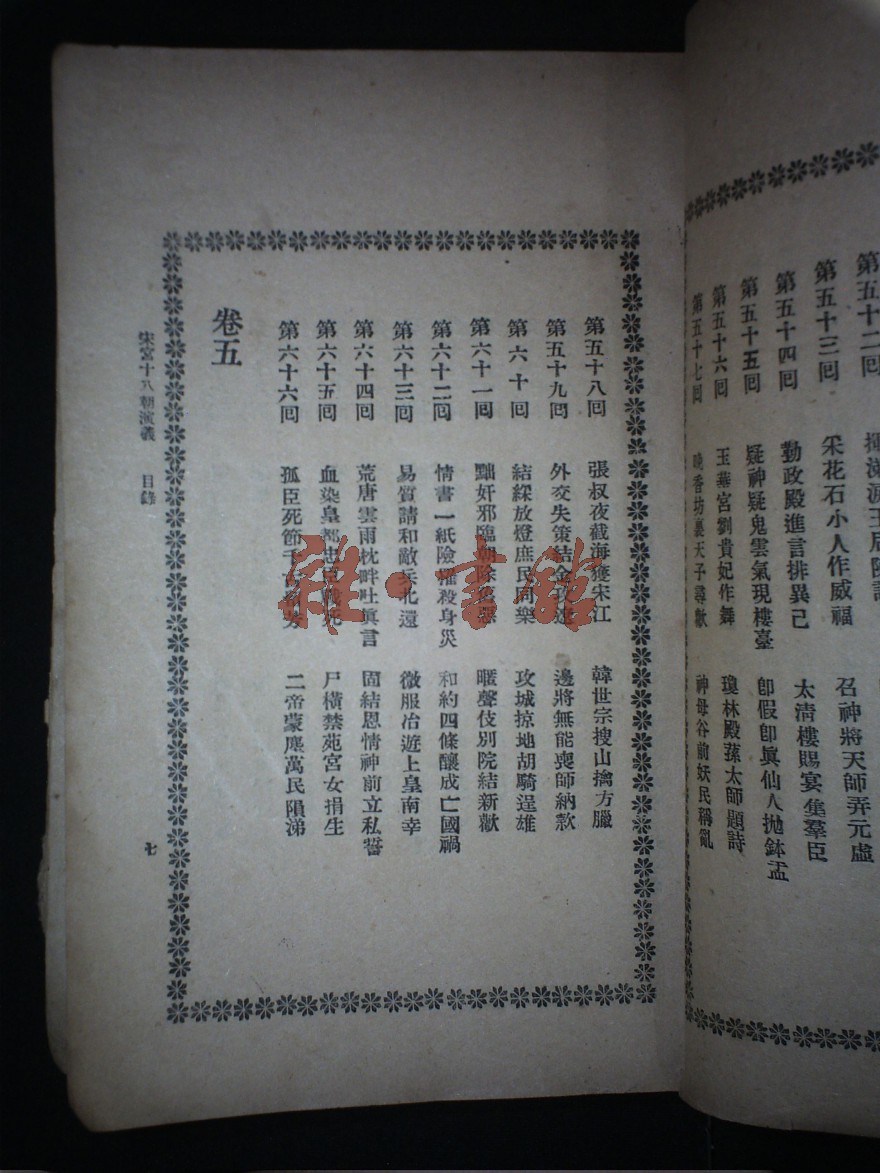 第五十二回
第五十三回 采花石小人作威福 召神將天師弄元虛
第五十四回 勤政殿進言排異己 太清樓賜宴集羣臣
第五十五回 疑神疑鬼雲氣現樓臺 卽假卽眞仙人拋鉢盂
第五十六回 玉華宮劉貴妃作舞 瓊林殿蔡太師題詩
第五十七回 晚香坊裏天子尋歡 神母谷前妖民稱亂
第五十八回 張叔夜截海獲宋江 韓世宗搜山擒方臘
第五十九回 外交失策結金攻遼 邊將無能喪師納款
第六十回 結綵放燈庶民同樂 攻城掠地胡騎逞雄
第六十一回 黜奸邪臨朝除 暱聲伎別院結新歡
第六十二回 情書一紙險 殺身災 和約四條釀成亡國禍
第六十三回 易質請和敵兵北還 微服冶遊上皇南幸
第六十四回 荒唐雲雨枕畔吐眞言 固結恩情神前立私誓
第六十五回 血染皇都忠臣 死 尸橫禁苑宮女捐生
第六十六回 孤臣死節千 二帝蒙塵萬民隕涕
卷五
宋宮十八朝演義 目錄
七
雜·書館